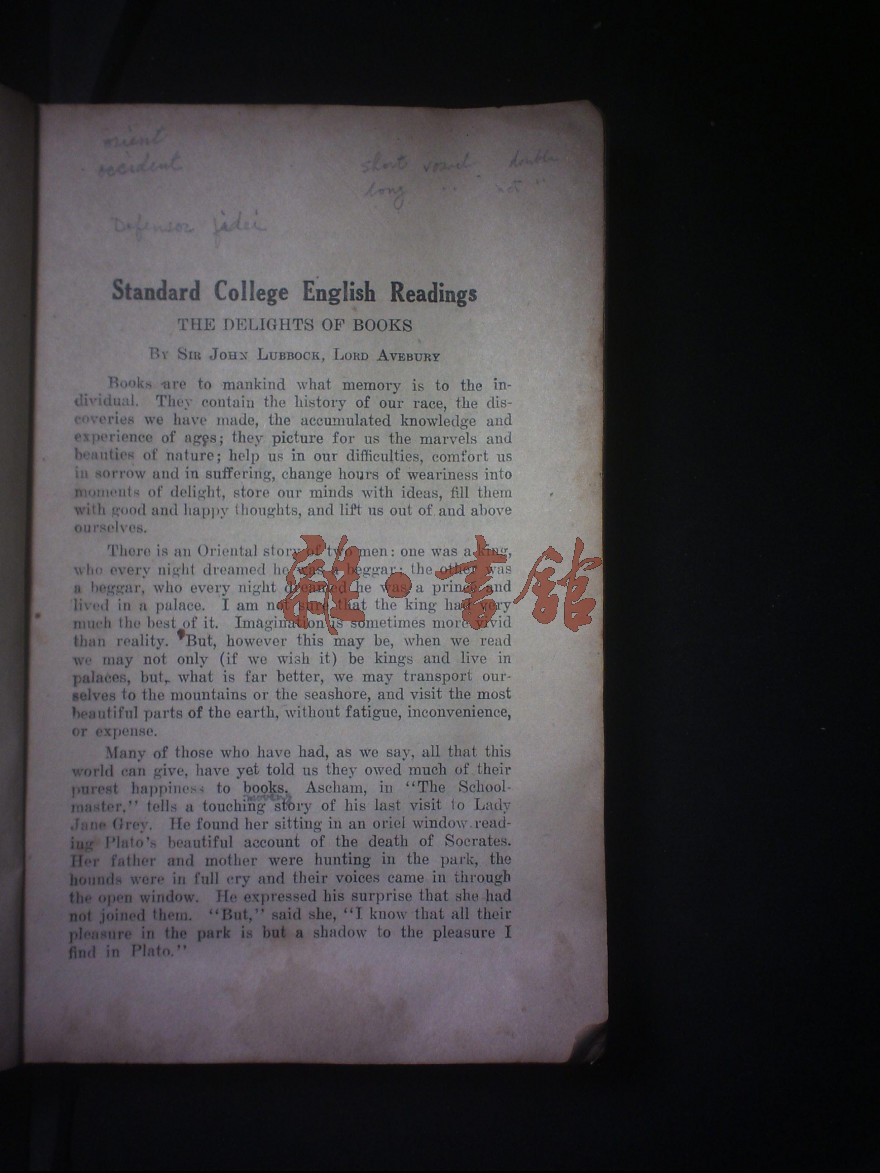 orient
occident
short vowel double
long " " not "
Defensor fidei
Standard College English Readings
THE DELIGHTS OF BOOKS
By Sir John Lubbock, Lord Avebury
Books are to mankind what memory is to the in-
dividual. They contain the history of our race, the dis-
coveries we have made, the accumulated knowledge and
experience of ages; they picture for us the marvels and
beauties of nature; help us in our difficulties, comfort us
in sorrow and in suffering, change hours of weariness into
moments of delight, store our minds with ideas, fill them
with good and happy thoughts, and lift us out of and above
ourselves.
There is an Oriental story of two men: one was a king,
who every night dreamed he was a beggar; the other was
a beggar, who every night dreamed he was a prince and
lived in a palace. I am not sure that the king had very
much the best of it. Imagination is sometimes more vivid
than reality. But, however this may be, when we read
we may not only (if we wish it) be kings and live in
palaces, but, what is far better, we may transport our-
selves to the mountains or the seashore, and visit the most
beautiful parts of the earth, without fatigue, inconvenience,
or expense.
Many of those who have had, as we say, all that this
world can give, have yet told us they owed much of their
purest happiness to books. Ascham, in "The School-
master," tells a touching story of his last visit to Lady
Jane Grey. He found her sitting in an oriel window read-
ing Plato's beautiful account of the death of Socrates.
Her father and mother were hunting in the park, the
hounds were in full cry and their voices came in through
the open window. He expressed his surprise that she had
not joined them. "But," said she, "I know that all their
pleasure in the park is but a shadow to the pleasure I
find in Plato."
雜·書館